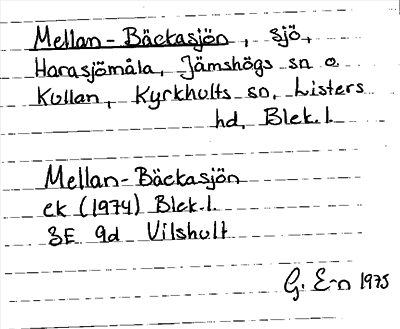 Mellan-Bäckasjön, sjö,
Harasjömåla, Jämshögs sn o
Kullan, Kyrkhults sn, Listers
hd, Blek.l.
Mellan-Bäckasjön
ek (1974) Blek.l.
3E 9d Vilshult
G. E-n 1975